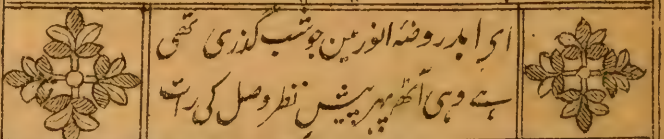 ای ابدر روضہ انور مین جو شب گذری تھی
ہے وہی آٹھ پہر پیش نظر وصل کی رات